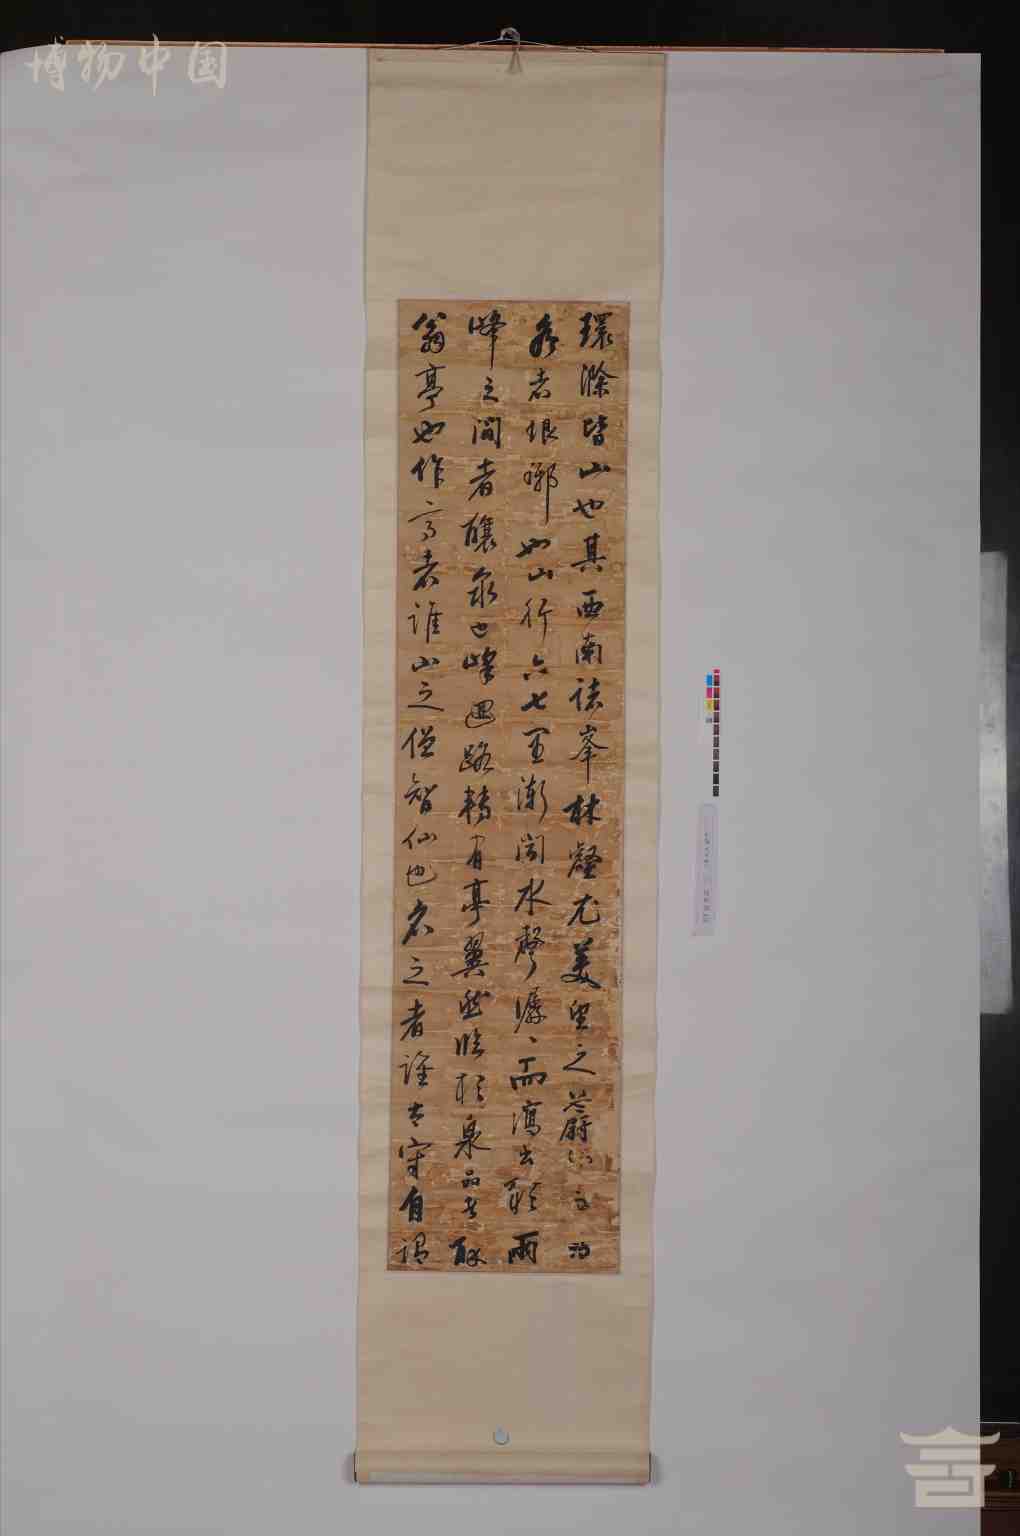 博物中国
環滁皆山也其西南諸峯林壑尤美望之蔚
秀者琅琊也山行六七里漸聞水聲潺、而瀉出於兩
峰之間者釀泉也峰回路轉有亭翼然臨於泉上者醉
翁亭也作亭者誰山之僧智仙也名之者誰太守自謂